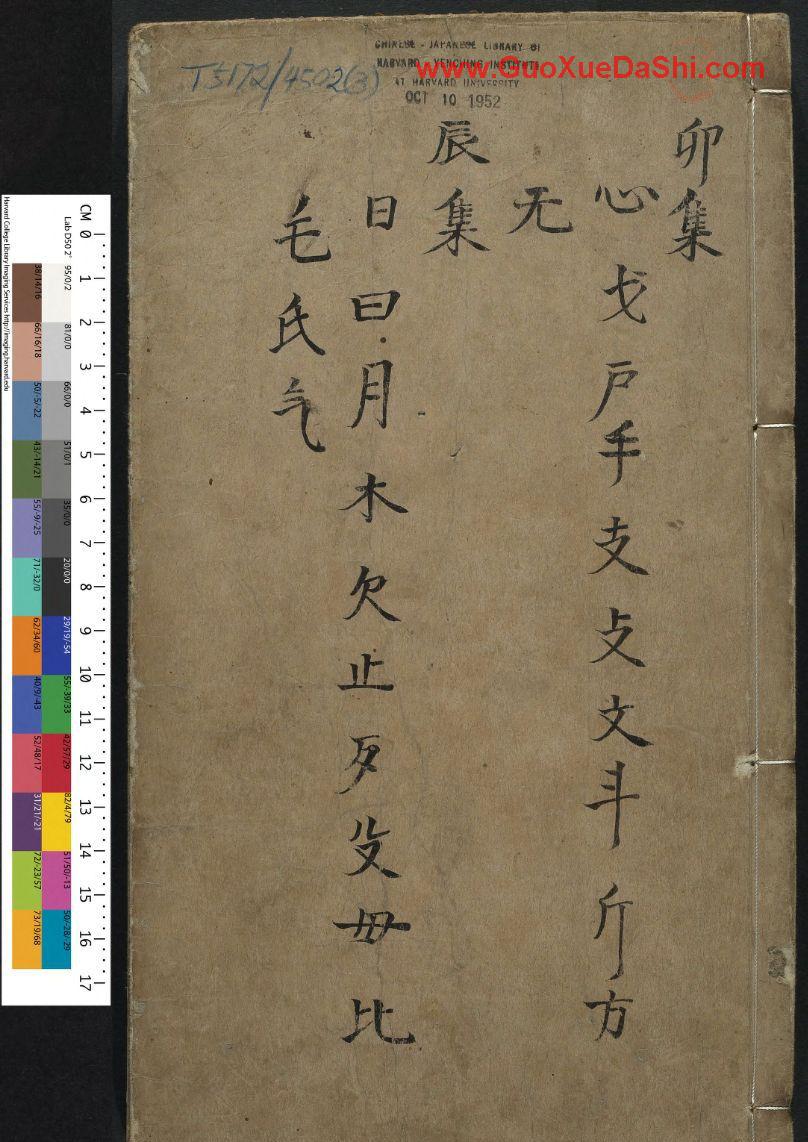 卯集
心戈戸手支攴文斗斤方
无
辰集
日曰月木欠止歹殳毋比
毛氏气
T5172/4502(3)
CHINESE - JAPANESE LIBRARY OF
HARVARD - YENCHING INSTITUTE
AT HARVARD UNIVERSITY
OCT 10 1952
www.GuoXueDaShi.com
CM 0 1 2 3 4 5 6 7 8 9 10 11 12 13 14 15 16 17
Lab D50 2° 95/0/2 81/0/0 66/0/0 51/0/1 35/0/0 20/0/0 29/19/-54 55/-39/33 42/57/29 82/4/79 51/50/-13 50/-28/-29
38/14/16 66/16/18 50/-5/-22 43/-14/21 55/-9/-25 71/-32/0 62/34/60 40/9/-43 52/48/17 31/21/-21 72/-23/57 73/19/68
Harvard College Library Imaging Services http://imaging.harvard.edu